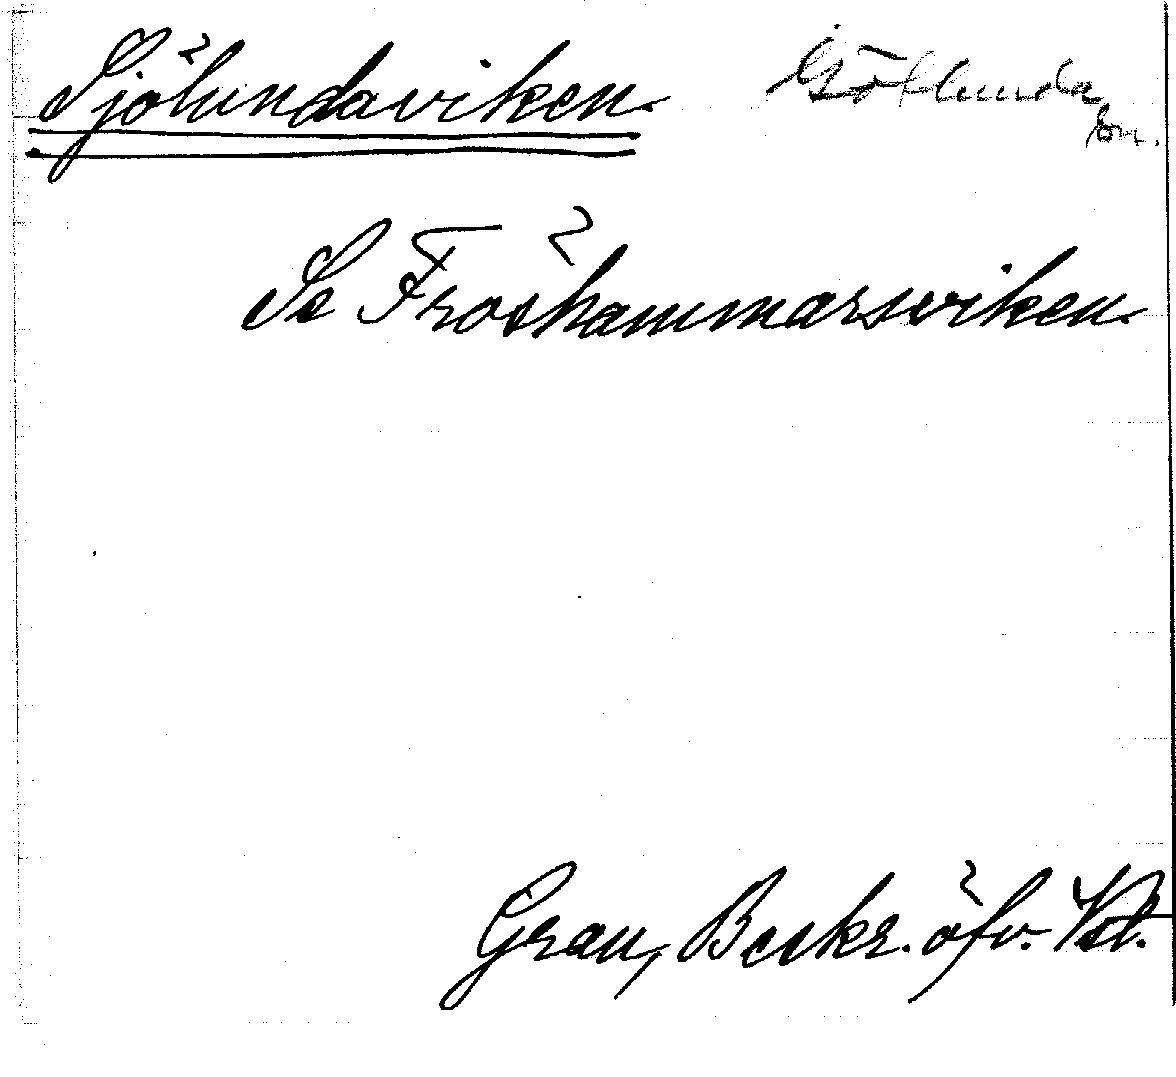 Sjölundaviken
Götlunda
sn.
Se Fröshammarsviken
Grau, Beskr. öfv. Vstl.